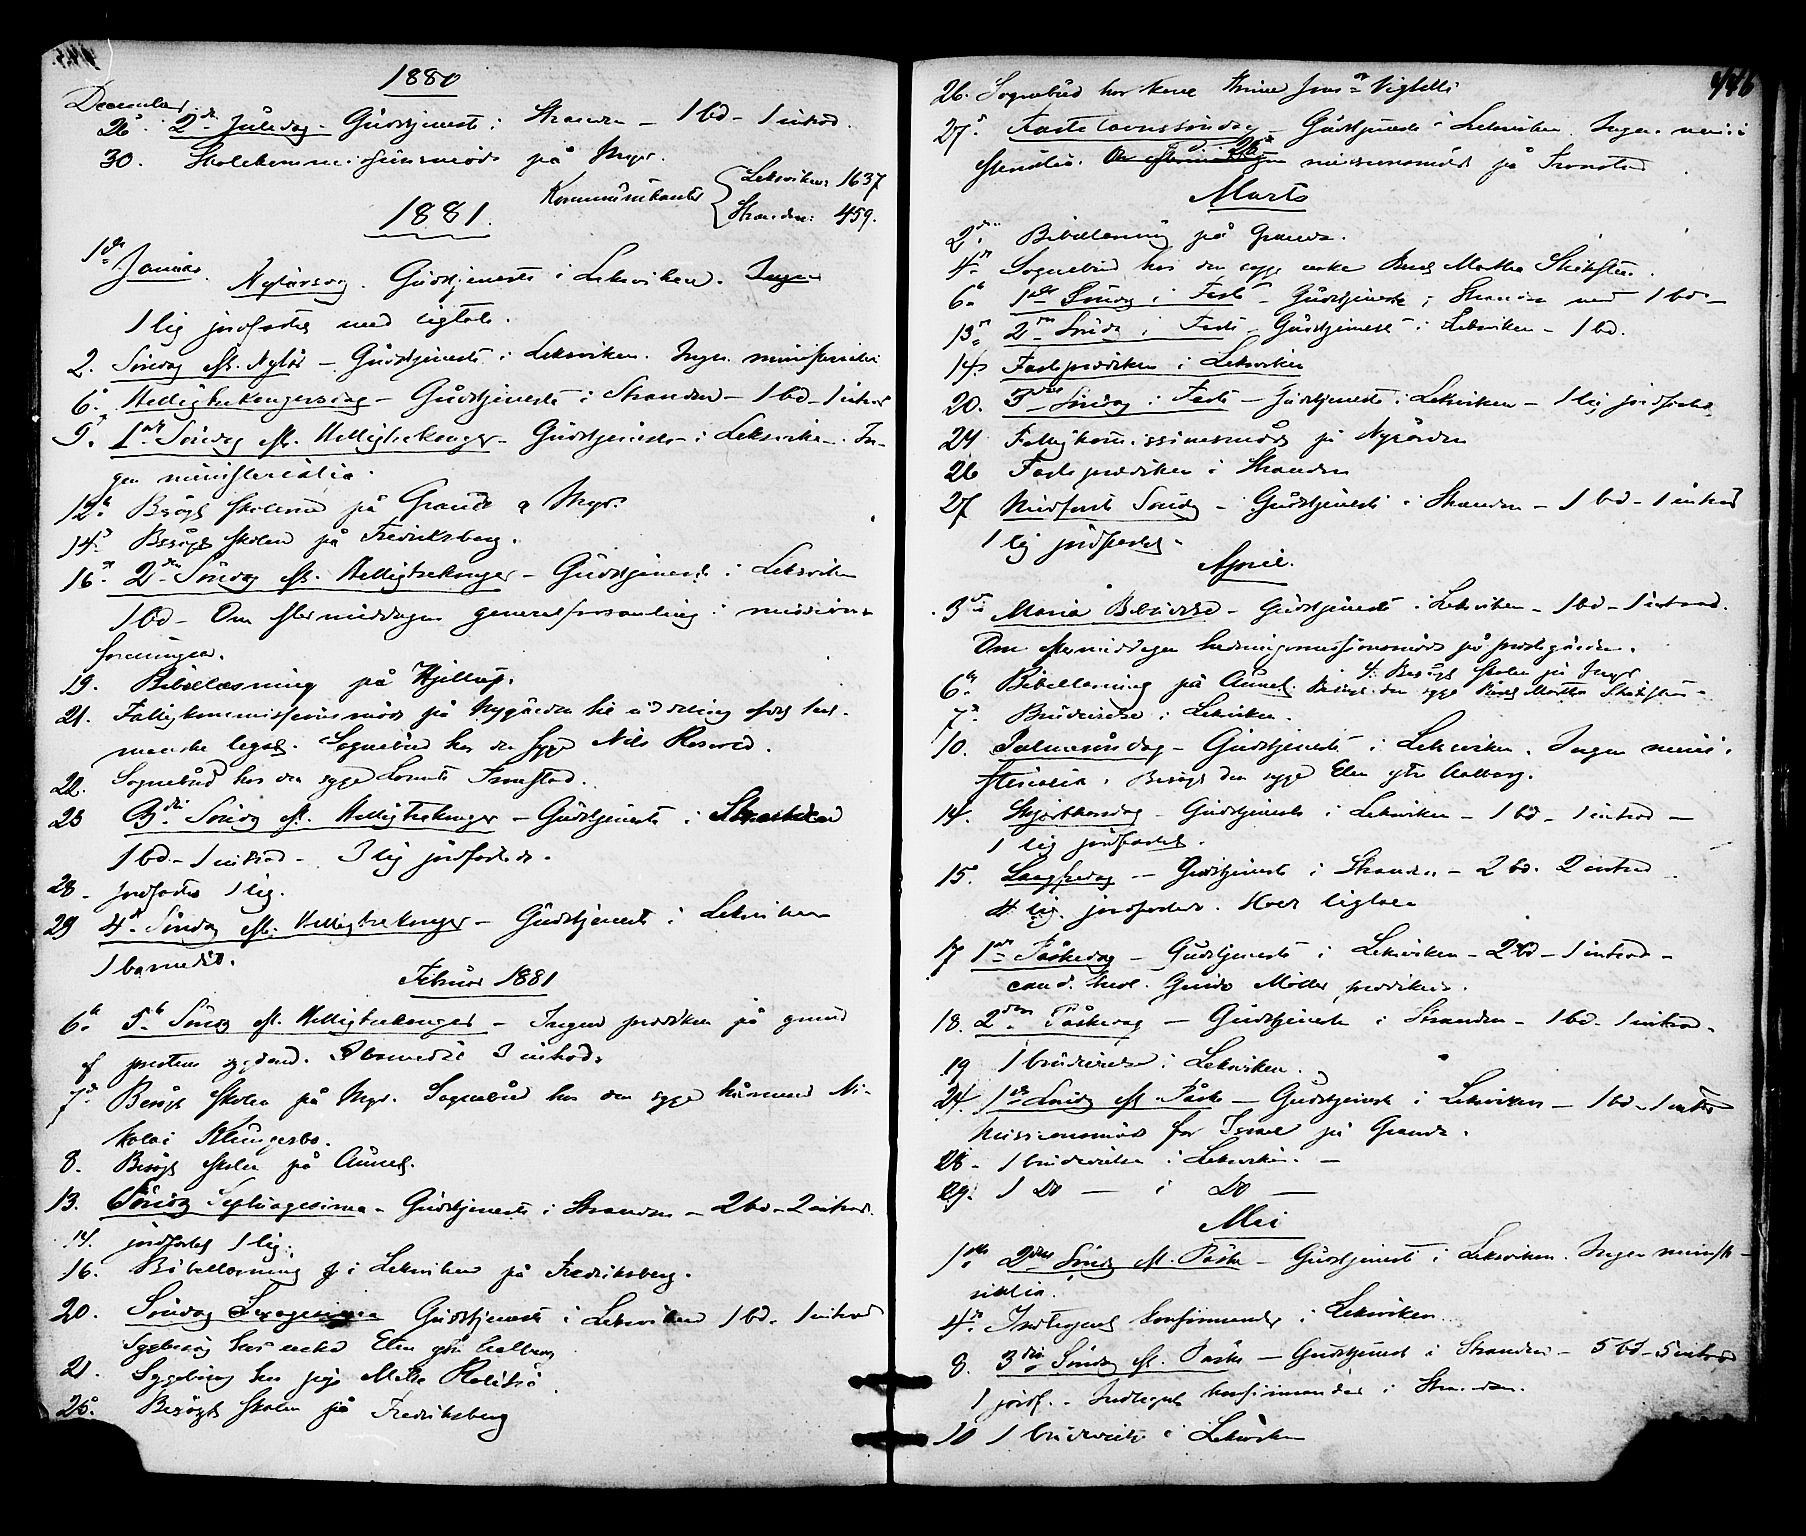 1880
December
26. 2den Juledag - Gudstjeneste i Stranden - 1 bd - 1 introd.
30. Skolekommissionsmøde på Myr.
Kommunikanter { Leksviken 1637
Stranden: 459.
1881.
1ste Januar. Nytårsdag. Gudstjeneste i Leksviken. Ingen
1 lig jordfæstet med ligtale.
2. Søndag eft. Nytår - Gudstjeneste i Leksviken. Ingen ministerialia
6. Helligtrekongersdag - Gudstjeneste i Stranden - 1 bd - 1 introd
9. 1ste Søndag eft. Helligtrekonger - Gudstjeneste i Leksviken. In-
gen ministerialia.
12. Besøgt skolerne på Grande og Myr.
14. Besøgt skolen på Fredriksberg.
16. 2den Søndag eft. Helligtrekonger - Gudstjeneste i Leksviken
1 bd - Om eftermiddagen generalforsamling i missions-
foreningen.
19. Bibellæsning på Hjellup.
21. Fattigkommissionsmøde på Nygården til uddeling af det
legat. Sognebud hos den syge Nils
22. Sognebud hos den syge Tronstad.
23 3die Søndag eft. Helligtrekonger - Gudstjeneste i Stranden
1 bd - 1 introd - 3 lig jordfæstede.
28 - jordfæstet 1 lig.
29 4de Søndag eft. Helligtrekonger - Gudstjeneste i Leksviken
1 barnedåb.
Februar 1881
6te 5te Søndag eft. Helligtrekonger - Ingen prædiken på grund
af prestens sygdom. barnedåb 3 introd.
7de Besøgt skolen på Myr. Sognebud hos den syge husmand Ni-
kolai Klungerbo.
8. Besøgt skolen på Aunet.
13. Søndag Septuagesima - Gudstjeneste i Stranden - 2 bd - 2 introd.
14. jordfæstet 1 lig.
16. Bibellæsning i Leksviken på Fredriksberg.
20. Søndag Sexagesima Gudstjeneste i Leksviken 1 bd - 1 introd
Sygebesøg hos enke Elen ytr. Aalberg
21. Sygebesøg hos pige Mette
25. Besøgt skolen på Fredriksberg
446
26. Sognebud hos kone Vigtil
27. Fastelavnssøndag - Gudstjeneste i Leksviken. Ingen mini-
sterialia. Om eftermiddagen missionsmøde på Tronstad
Marts
2den Bibellæsning på Grande.
4de Sognebud hos den syge enke Martha
6te 1ste Søndag i Faste - Gudstjeneste i Stranden med 1 bd -
13de 2den Søndag i Faste - Gudstjeneste i Leksviken - 1 bd.
14. Fasteprædiken i Leksviken
20. 3die Søndag i Faste - Gudstjeneste i Leksviken - 1 lig jordfæstet
24 Fattigkommissionsmøde på Nygården
26 Fasteprædiken i Stranden
27 Midfaste Søndag - Gudstjeneste i Stranden - 1 bd - 1 introd
1 lig jordfæstet.
April.
3die Maria Bebudelse - Gudstjeneste i Leksviken - 1 bd - 1 introd.
Om eftermiddagen hedningemissionsmøde på prestegården.
4. Besøgt skolen på Myr
6te Bibellæsning på Aunet. Besøgt den syge Martha
7de Brudevielse i Leksviken.
10. Palmesøndag - Gudstjeneste i Leksviken. Ingen mini-
sterialia. Besøgt den syge Elen ytr. Aalberg.
14. Skjærthorsdag - Gudstjeneste i Leksviken - 1 bd - 1 introd -
1 lig jordfæstet.
15. Langfredag - Gudstjeneste i Stranden - 2 bd - 2 introd
4 lig jordfæstede. Holdt ligtale
17 1ste Påskedag - Gudstjeneste i Leksviken - 2 bd - 1 introd -
cand. theol. Guido Möller prædikede.
18. 2den Påskedag - Gudstjeneste i Stranden - 1 bd - 1 introd -
19 1 brudevielse i Leksviken.
24. 1ste Søndag eft. Påske - Gudstjeneste i Leksviken - 1 bd - 1 introd
Missionsmøde for Israel på Grande.
28 - 1 brudevielse i Leksviken. -
29. 1 Do - i Do -
Mai
1ste 2den Søndag eft. Påske - Gudstjeneste i Leksviken. Ingen ministe-
rialia.
4de Indtegnet konfirmander i Leksviken.
8. 3die Søndag eft. Påske - Gudstjeneste i Stranden - 5 bd - 5 introd
1 jordf. - Indtegnet konfirmander i Stranden.
10 1 brudevielse i Leksviken